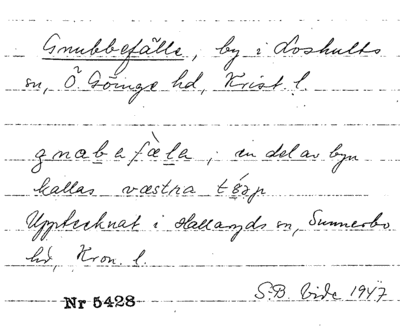 Gnubbefälle, by i Loshults
sn, Ö. Göinge hd, Krist. l.
gnabafæla; en del av byn
kallas væstra
Upptecknat i Hallaryds sn, Sunnerbo
hd, Kron. l.
Nr 5428
S.B. Vide 1947